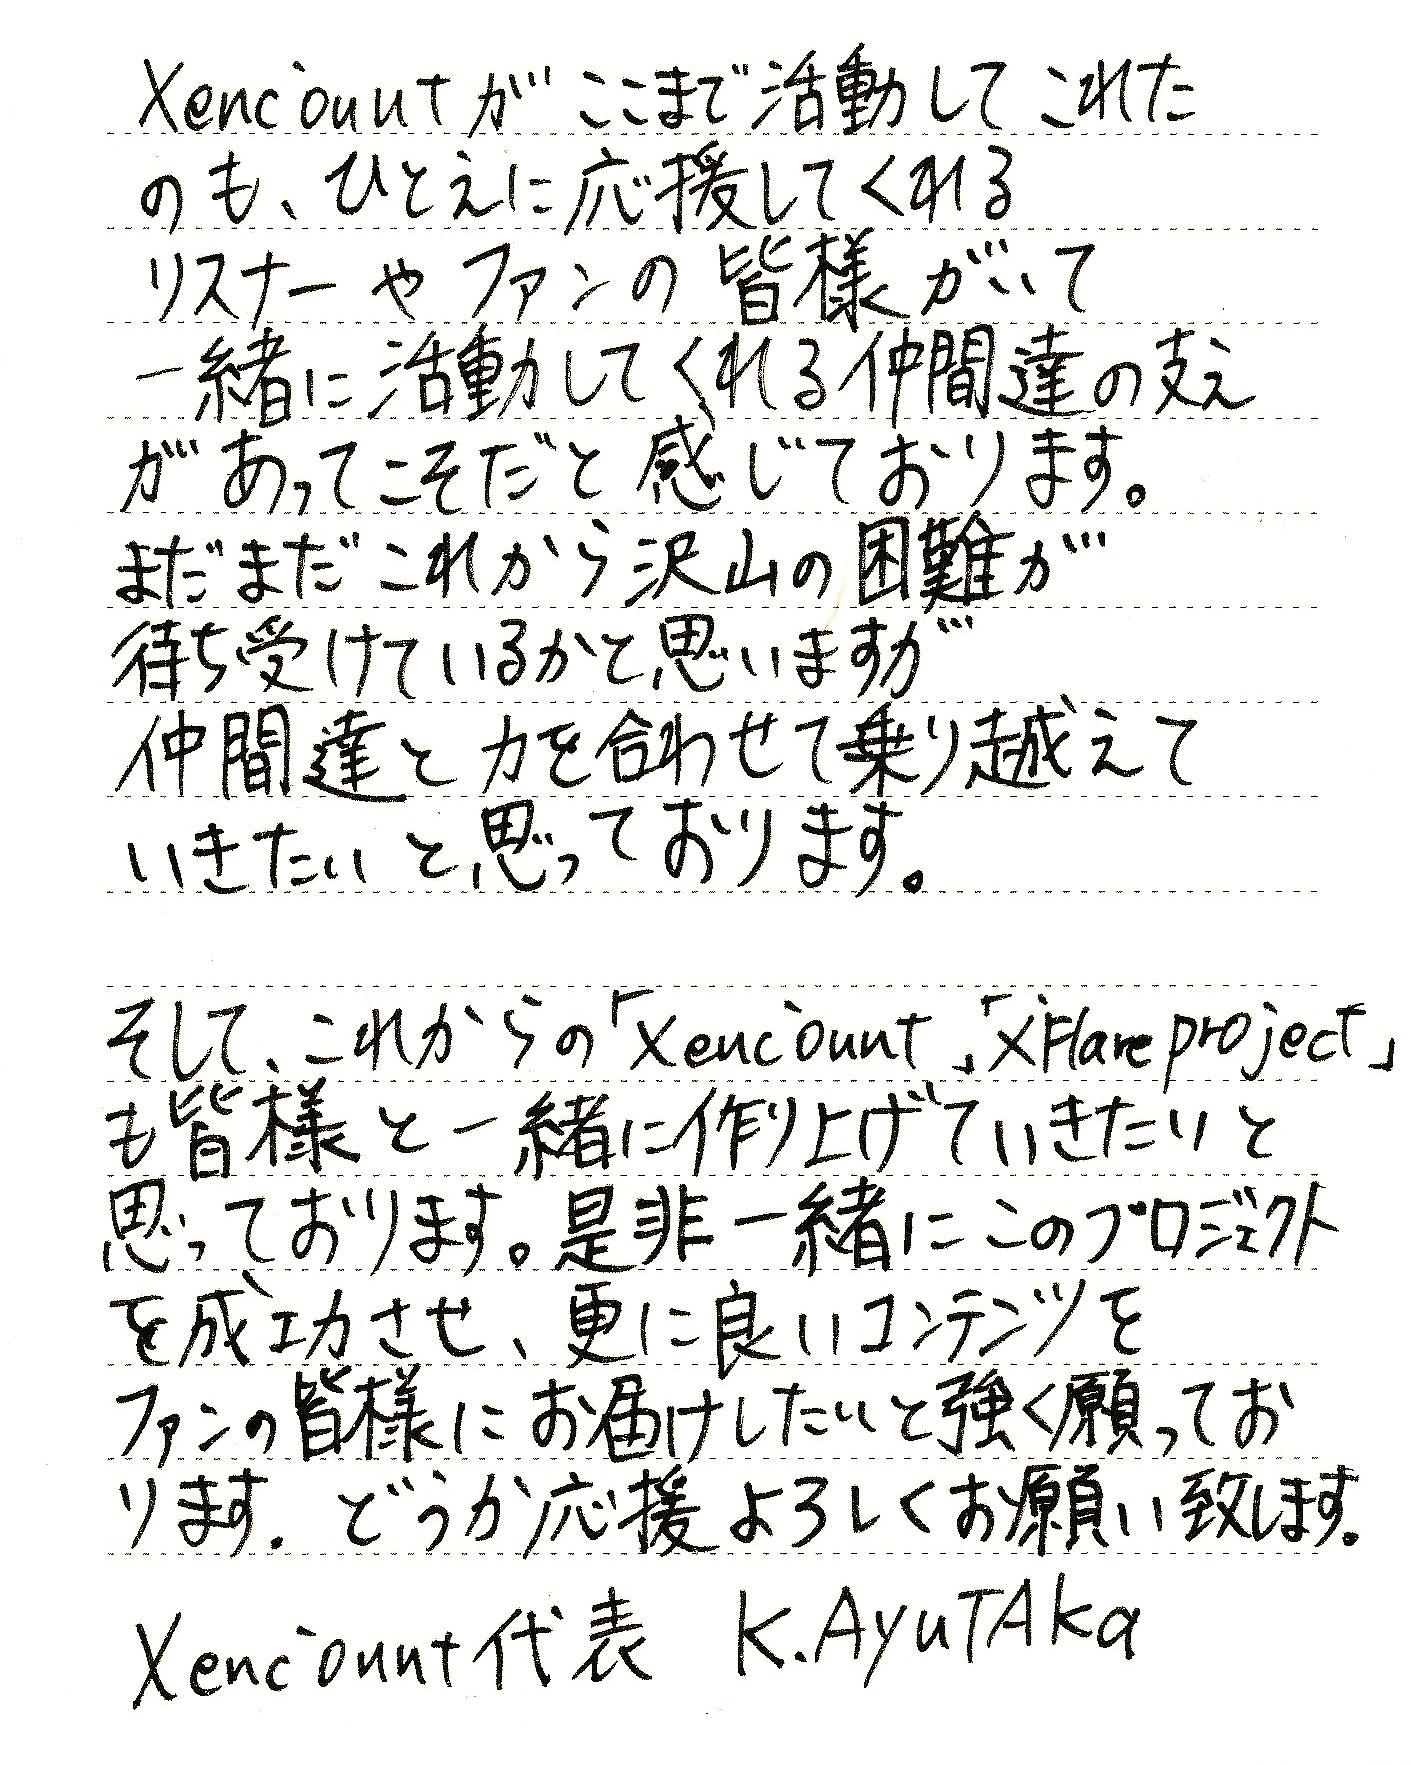 Xenc'ountがここまで活動してこれた
のも、ひとえに応援してくれる
リスナーやファンの皆様がいて
一緒に活動してくれる仲間達の支え
があってこそだと感じております。
まだまだこれから沢山の困難が
待ち受けているかと思いますが
仲間達と力を合わせて乗り越えて
いきたいと思っております。
そして、これからの「Xenc'ount」「X'Flare project」
も皆様と一緒に作り上げていきたいと
思っております。是非一緒にこのプロジェクト
を成功させ、更に良いコンテンツを
ファンの皆様にお届けしたいと強く願ってお
ります. どうか応援よろしくお願い致します。
Xenc'ount代表 K.AyuTAka